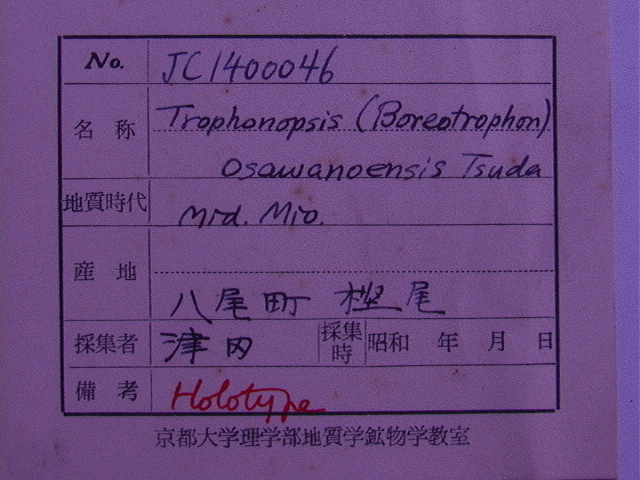 No. JC1400046
名称 Trophonopsis (Boreotrophon)
osawanoensis Tsuda
地質時代 Mid. Mio.
産地
八尾町 樫尾
採集者 津田 採集時 昭和 年 月 日
備考 Holotype
京都大学理学部地質学鉱物学教室